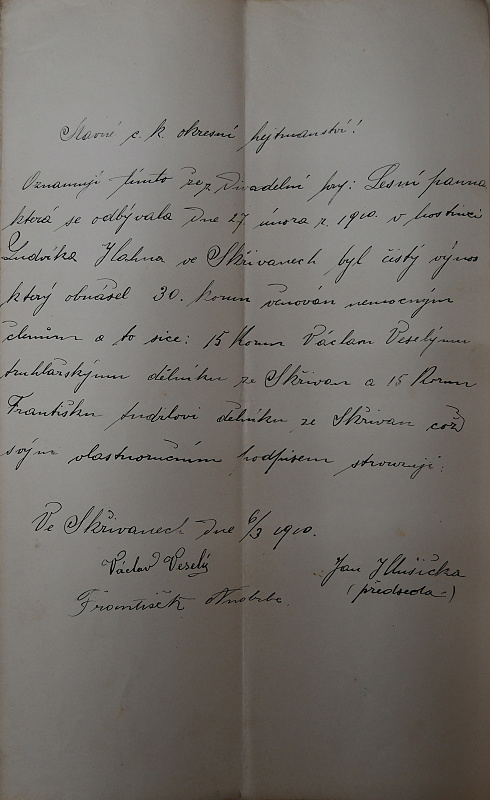 Slavné c. k. okresní hejtmanství!
Oznamuji tímto že z Divadelní hry: Lesní panna
která se odbývala dne 27 února r. 1910. v hostinci
Ludvíka Hahna ve Skřivanech byl čistý výnos
který obnášel 30. korun věnován nemocným
členům a to sice: 15 Korun Václavu Veselýmu
truhlářskýmu dělníku ze Skřivan a 15 Korun
Františku dělníku ze Skřivan což
svým vlastnoručním podpisem stvrzují:
Ve Skřivanech dne 6/3 1910.
Václav Veselý
Jan Hlušička
František
(předseda)